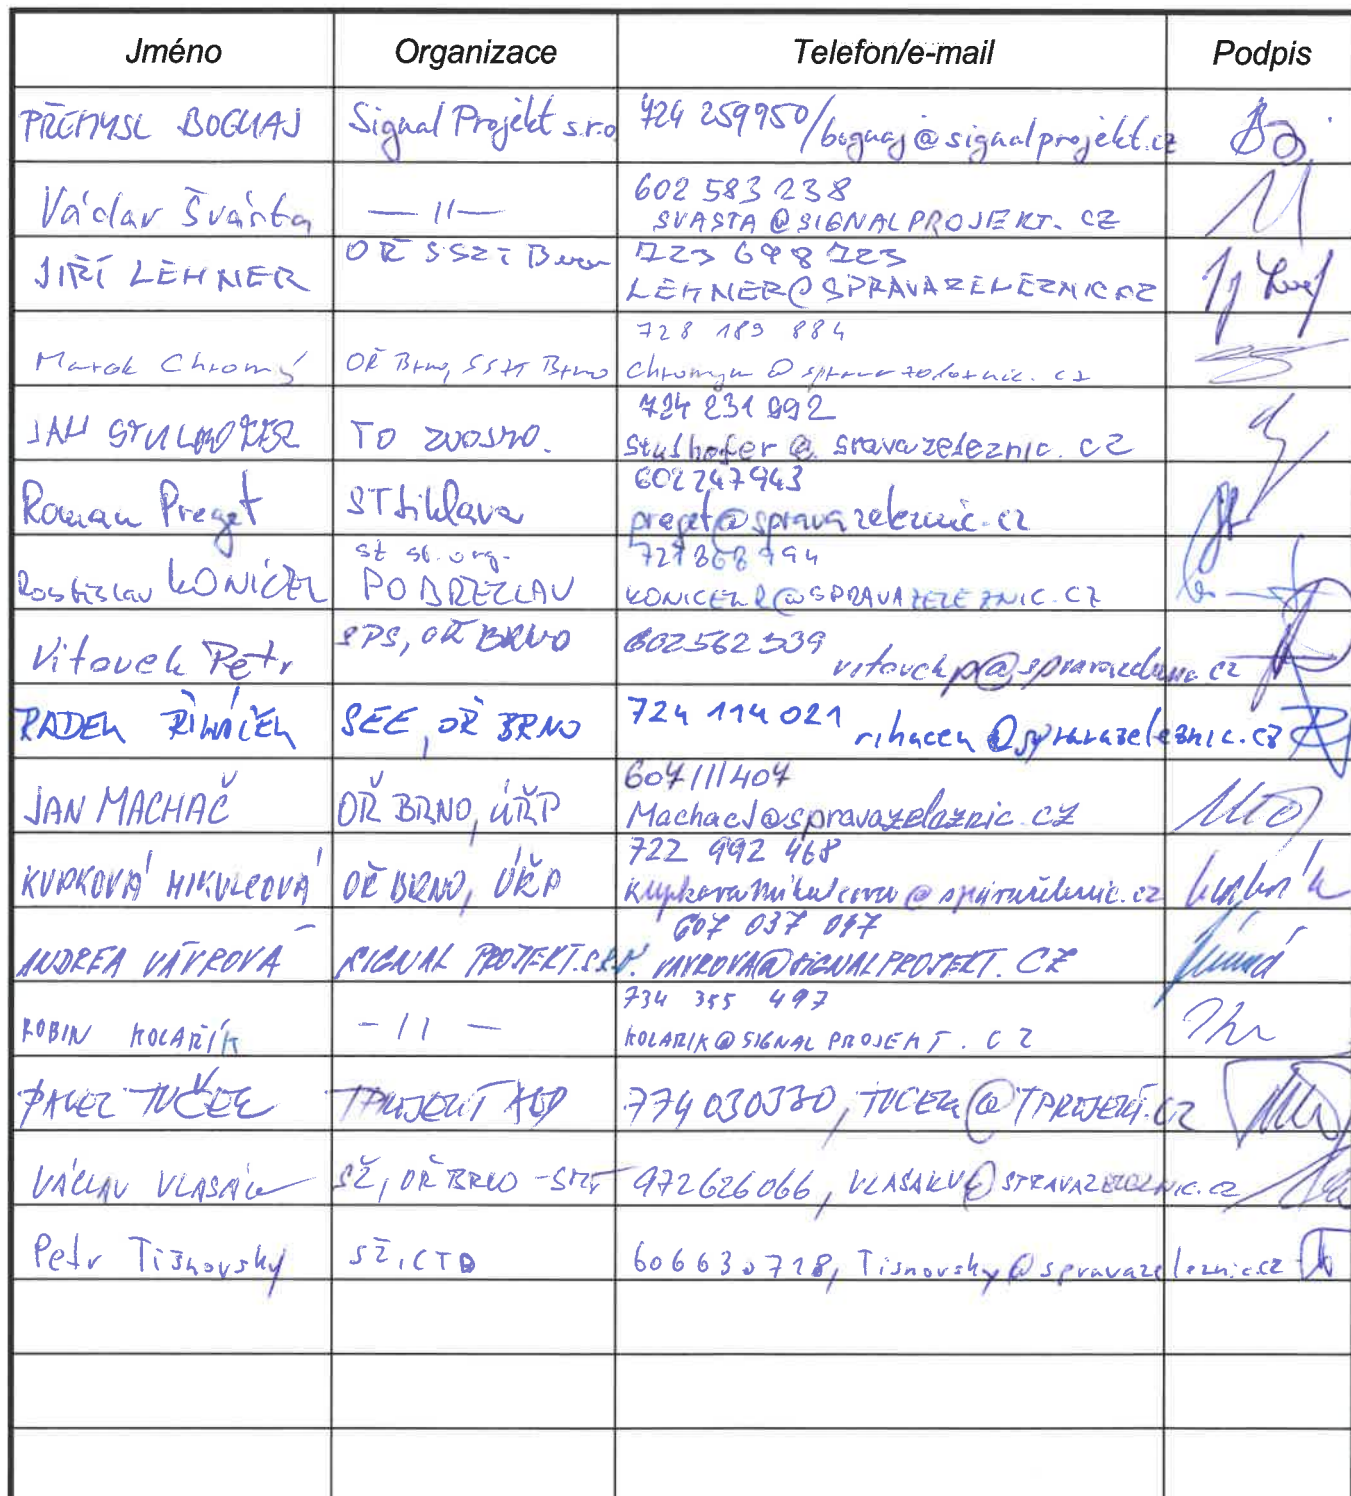 Jméno Organizace Telefon/e-mail Podpis
PŘEMYSL BOGUAJ Signal Projekt s.r.o 724 259950/boguaj@signalprojekt.cz
Václav Švásta — 11 — 602 583 238
SVASTA@SIGNALPROJEKT.CZ
JIŘÍ LEHNER OŘ SSZT Brno 723 698 723
LEHNER@SPRAVAZELEZNIC.CZ
Marek Chromý OŘ Brno, SSZT Brno 728 189 884
Chromym@spravazeleznic.cz
JAN TO 724 231 992
stulhofer@sravazeleznic.cz
Roman Preget ST Jihlava 602247943
preget@spravazeleznic.cz
Rostislav KONÍČEK st st. org.
PO BŘEZLAV 727868794
KONICEKR@SPRAVAZELEZNIC.CZ
Vitouch Petr SPS, OŘ BRNO 602562339
RADEK ŘIHÁČEK SEE, OŘ BRNO 724 114 021 rihacek@spravazeleznic.cz
JAN MACHAČ OŘ BRNO, ÚŘP 607111407
MachacJ@spravazeleznic.cz
KUPKOVÁ MIKULCOVÁ OŘ BRNO, ÚŘP 722 992 468
ANDREA VÁVROVÁ SIGNAL PROJEKT.S.R.O. 607 037 047
VAVROVA@SIGNALPROJEKT.CZ
ROBIN KOLAŘÍK - 11 — 734 355 497
KOLARIK@SIGNALPROJEKT.CZ
PAVEL TUČEK 774030330, TUCEK@TPROJEKT.CZ
VÁCLAV VLASÁK SŽ, OŘ BRNO - 972626066, VLASAKV@STRAVAZELEZNIC.CZ
Petr Tišnovský SŽ, CTD 606630718, Tisnovsky@spravazeleznic.cz